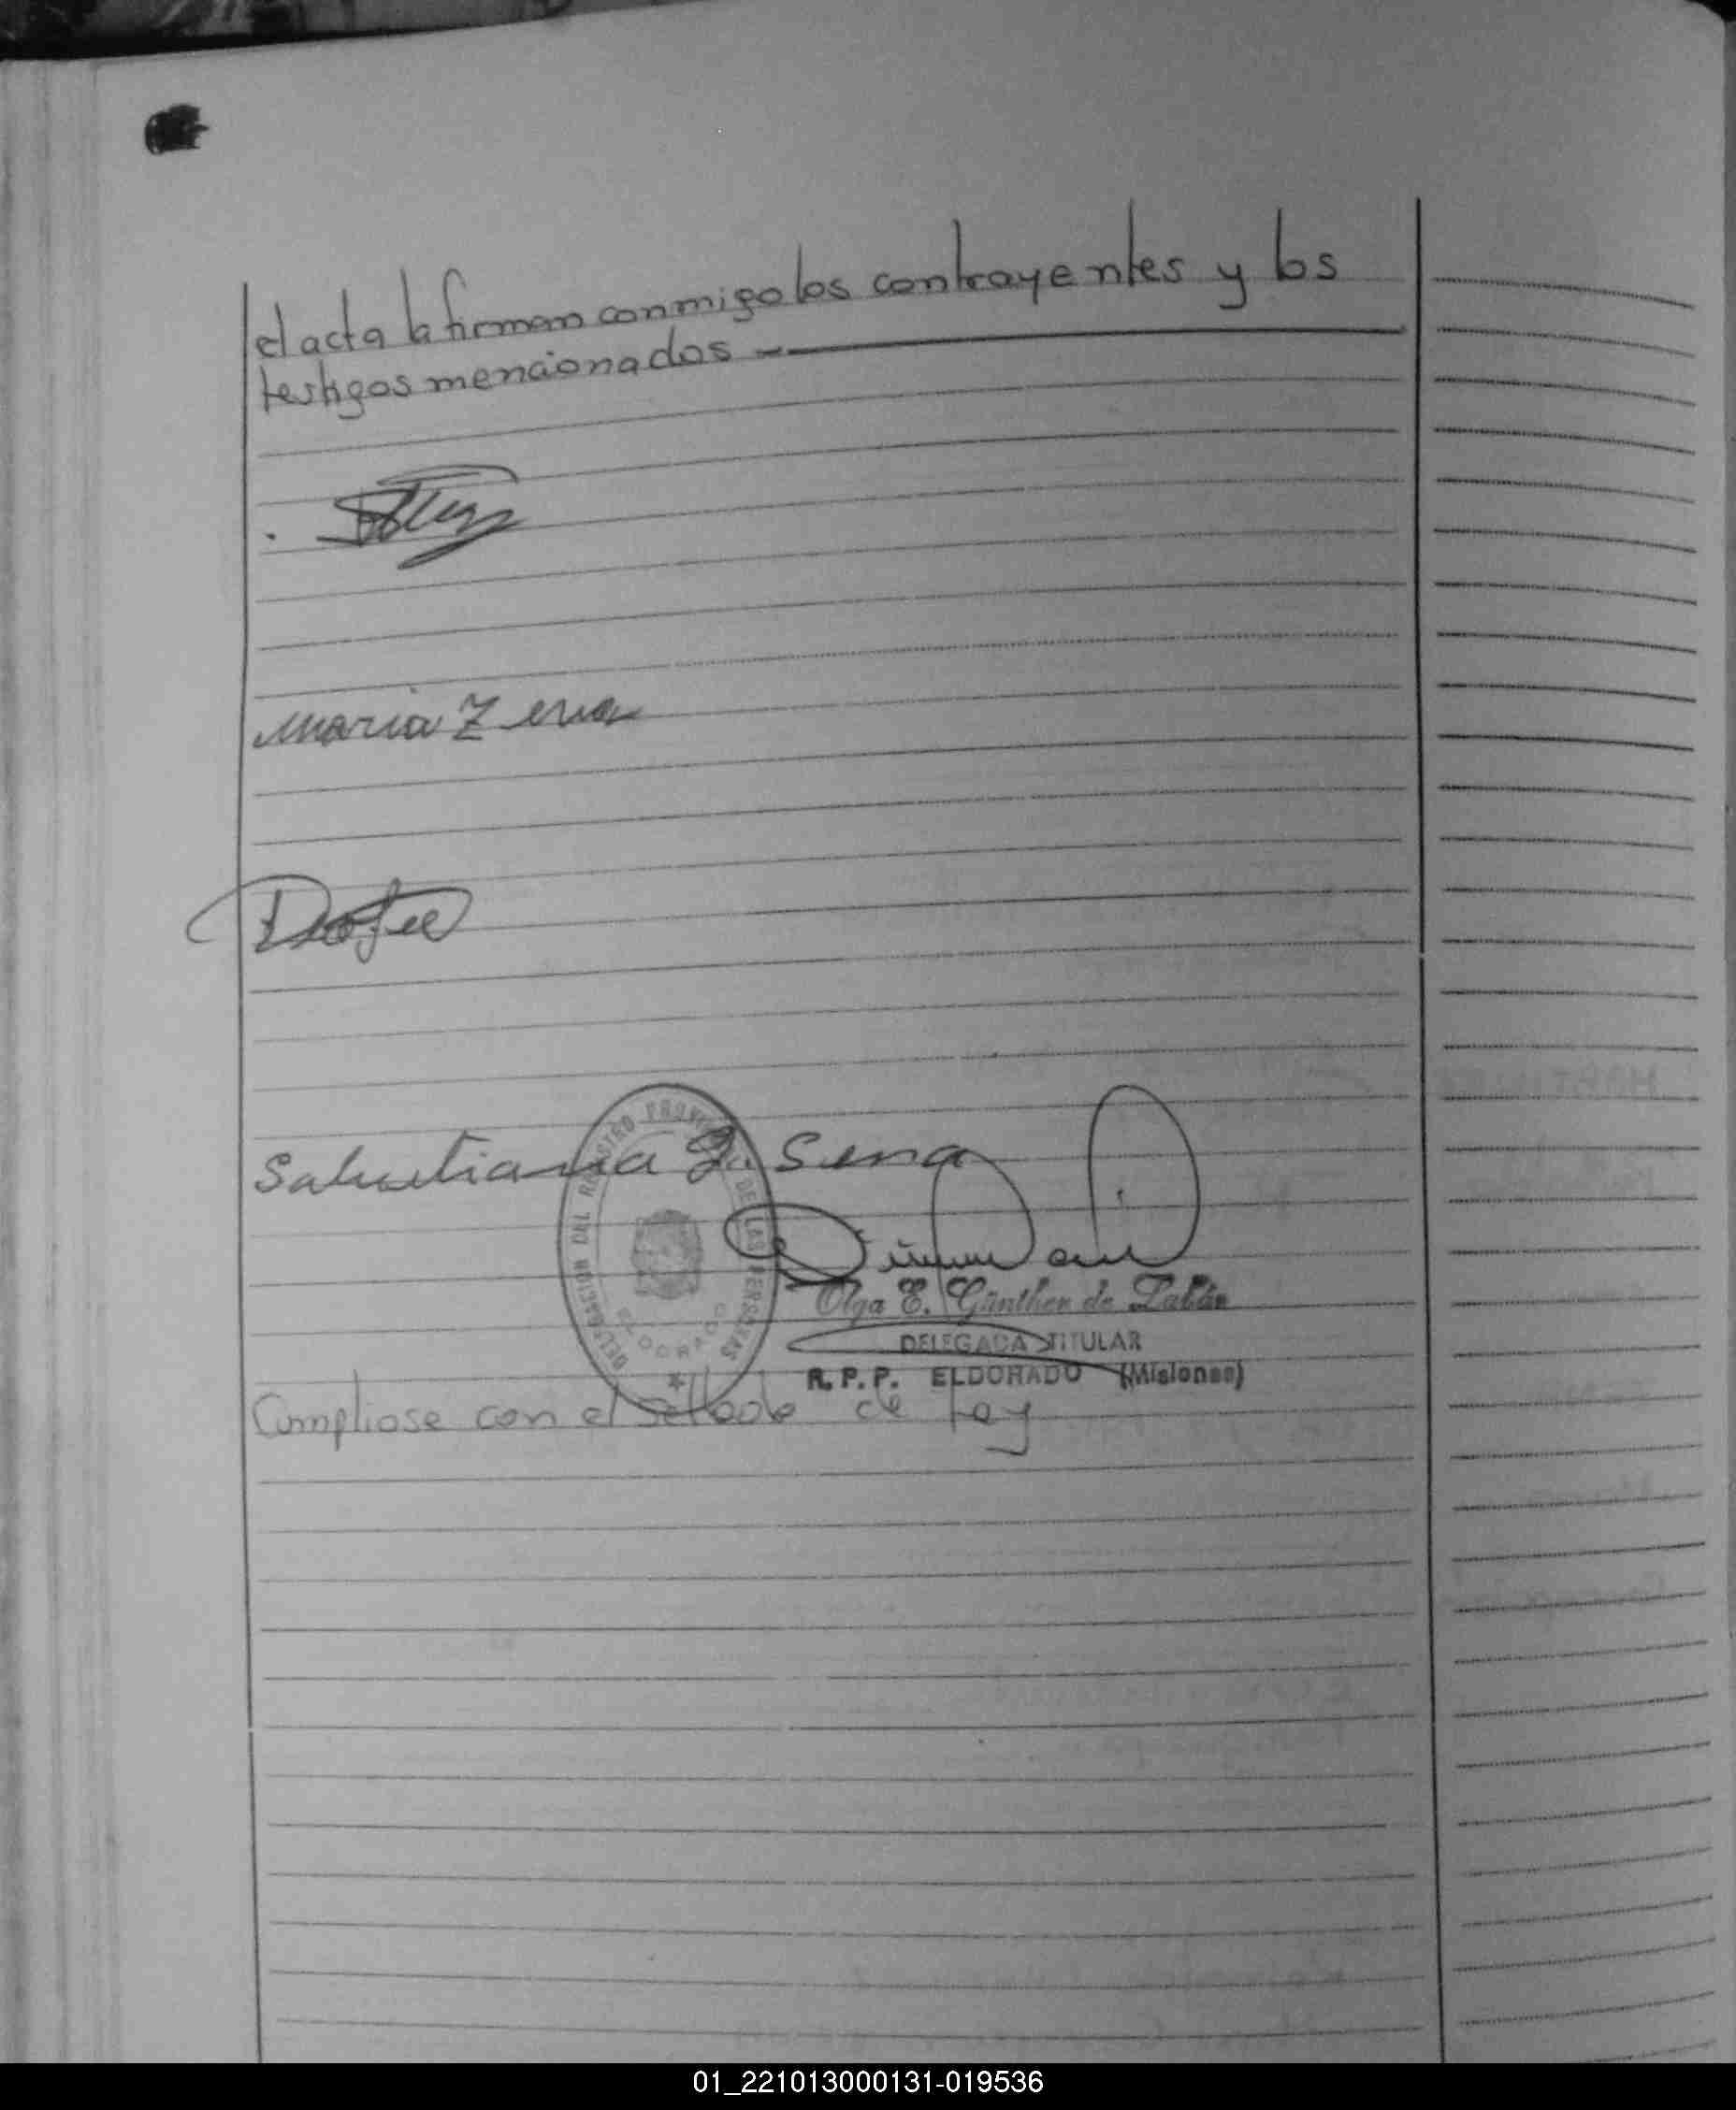 el acta la firman conmigo los contrayentes y los
testigos mencionados
Maria Zena
Salustiana J. Sena
DELEGACION DEL REGISTRO PROVINCIAL DE LAS PERSONAS
ELDORADO
Olga E. Günther de Labán
DELEGADA TITULAR
R.P.P. ELDORADO (Misiones)
Cumpliose con el sellado de Ley
01_221013000131-019536